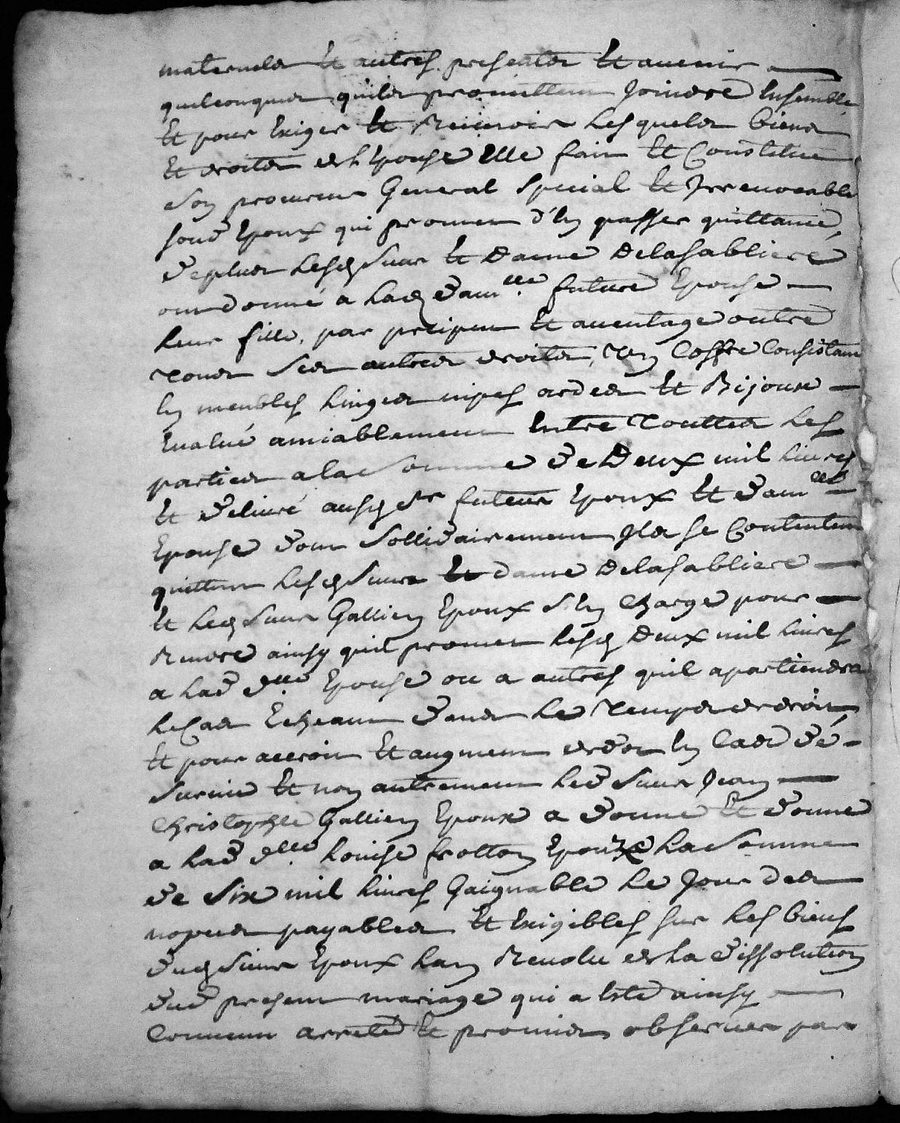 maternels et autres presentes et avenir
quelconques quilz promettent Joindre Ensemble
Et pour Exiger et Recevoir Lesquels biens
Et droits de lEpouse Elle fait et Constitue
Son procureur General Special et Irrevocable
sond Epoux qui promet d'En passer quittance,
De plus Lesd Sieur et Dame Delasabliere
ont donné a Lad Dam.lle future Epouse
Leur fille, par precipu et aventage outre
Tous Ses autres droits, Un Coffre Consistant
En meubles Linges nipes ardes et Bijoux
Evalué amiablement Entre Touttes Les
parties a la Somme De Deux mil Livres
Et Delivré ausd Sr futeur Epoux et Dam.lle
Epouse dont Sollidairement Ils se Contentent
quittent Lesd Sieur et dame Delasabliere
Et Led Sieur Gallien Epoux S'En Charge pour
Rendre ainsy quil promet Lesd Deux mil Livres
a Lad D.lle Epouse ou a autres quil apartiendra
Le Cas Echeant Dans Le Temps de droit
Et pour accroit Et augment de dot En Cas De
Survie Et non autrement Led Sieur Jean
Christophle Gallien Epoux a Donné Et Donne
a Lad D.lle Louise frotton Epouze La Somme
De Six mil Livres Gaignable Le Jour des
nopces payables Et Exigibles sur Les biens
Dud Sieur Epoux Lan Revolu de La Dissolution
Dud present mariage qui a Eté ainsy
Convenu arreté Et promis observer par